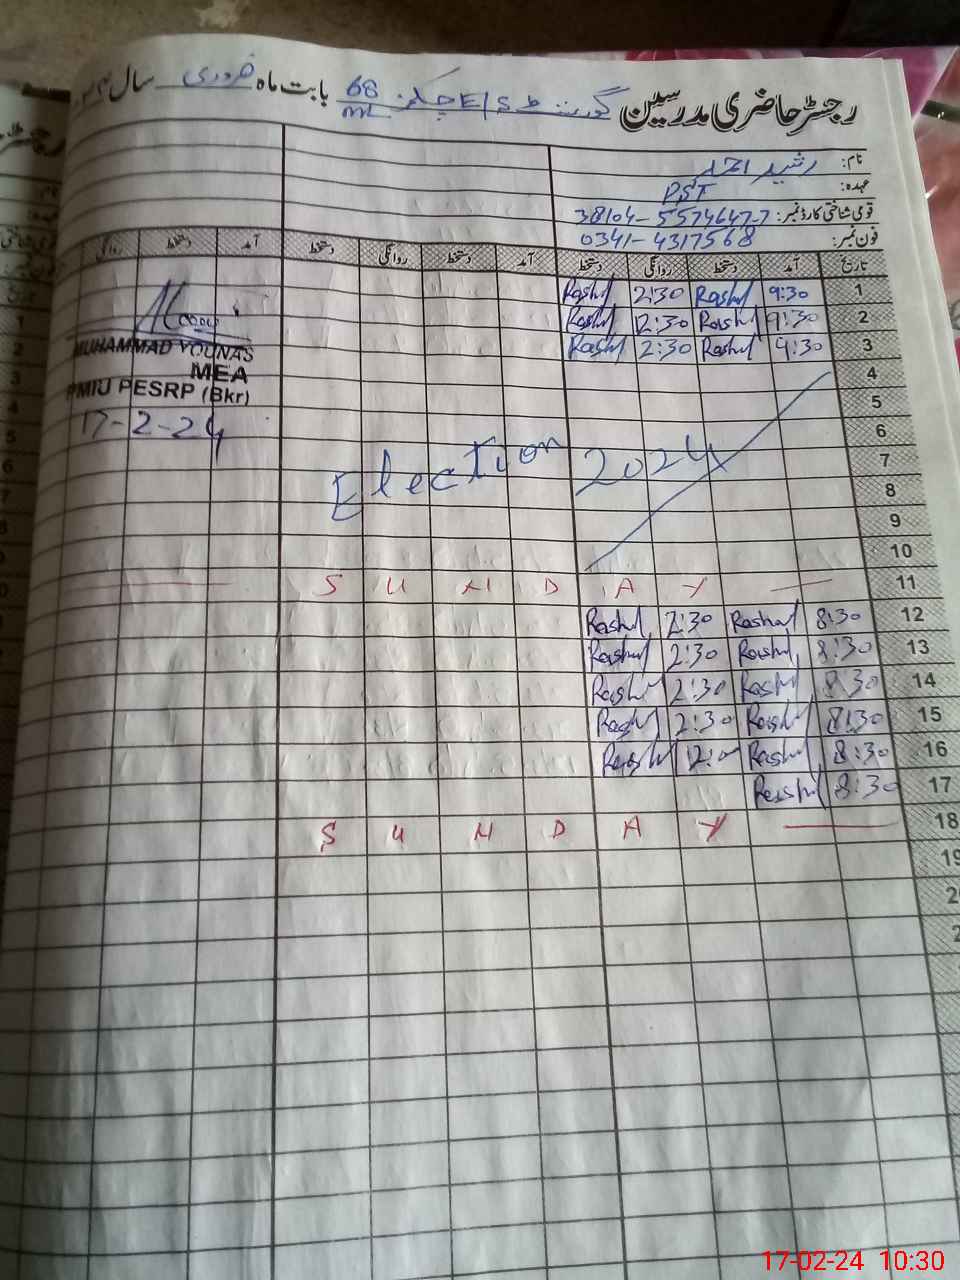 رجسٹر حاضری مدرسین گورنمنٹ E/S چک نمبر 68 ML بابت ماہ فروری سال
نام: رشید احمد
عہدہ: PST
قومی شناختی کارڈ نمبر: 38104-5574647-7
فون نمبر: 0341-4317568
تاریخ آمد دستخط روانگی دستخط آمد دستخط روانگی دستخط آمد دستخط روانگی
1 9:30 Rashid 2:30 Rashid
2 9:30 Rashid 12:30 Rashid
3 9:30 Rashid 2:30 Rashid
4
5
6
7
8
9
10
Election 2024
11 S U N D A Y
12 8:30 Rashid 2:30 Rashid
13 8:30 Rashid 2:30 Rashid
14 8:30 Rashid 2:30 Rashid
15 8:30 Rashid 2:30 Rashid
16 8:30 Rashid 12:0 Rashid
17 8:30 Rashid
18 S U N D A Y
19
MUHAMMAD YOUNAS
MEA
PMIU PESRP (Bkr)
17-2-24
17-02-24 10:30